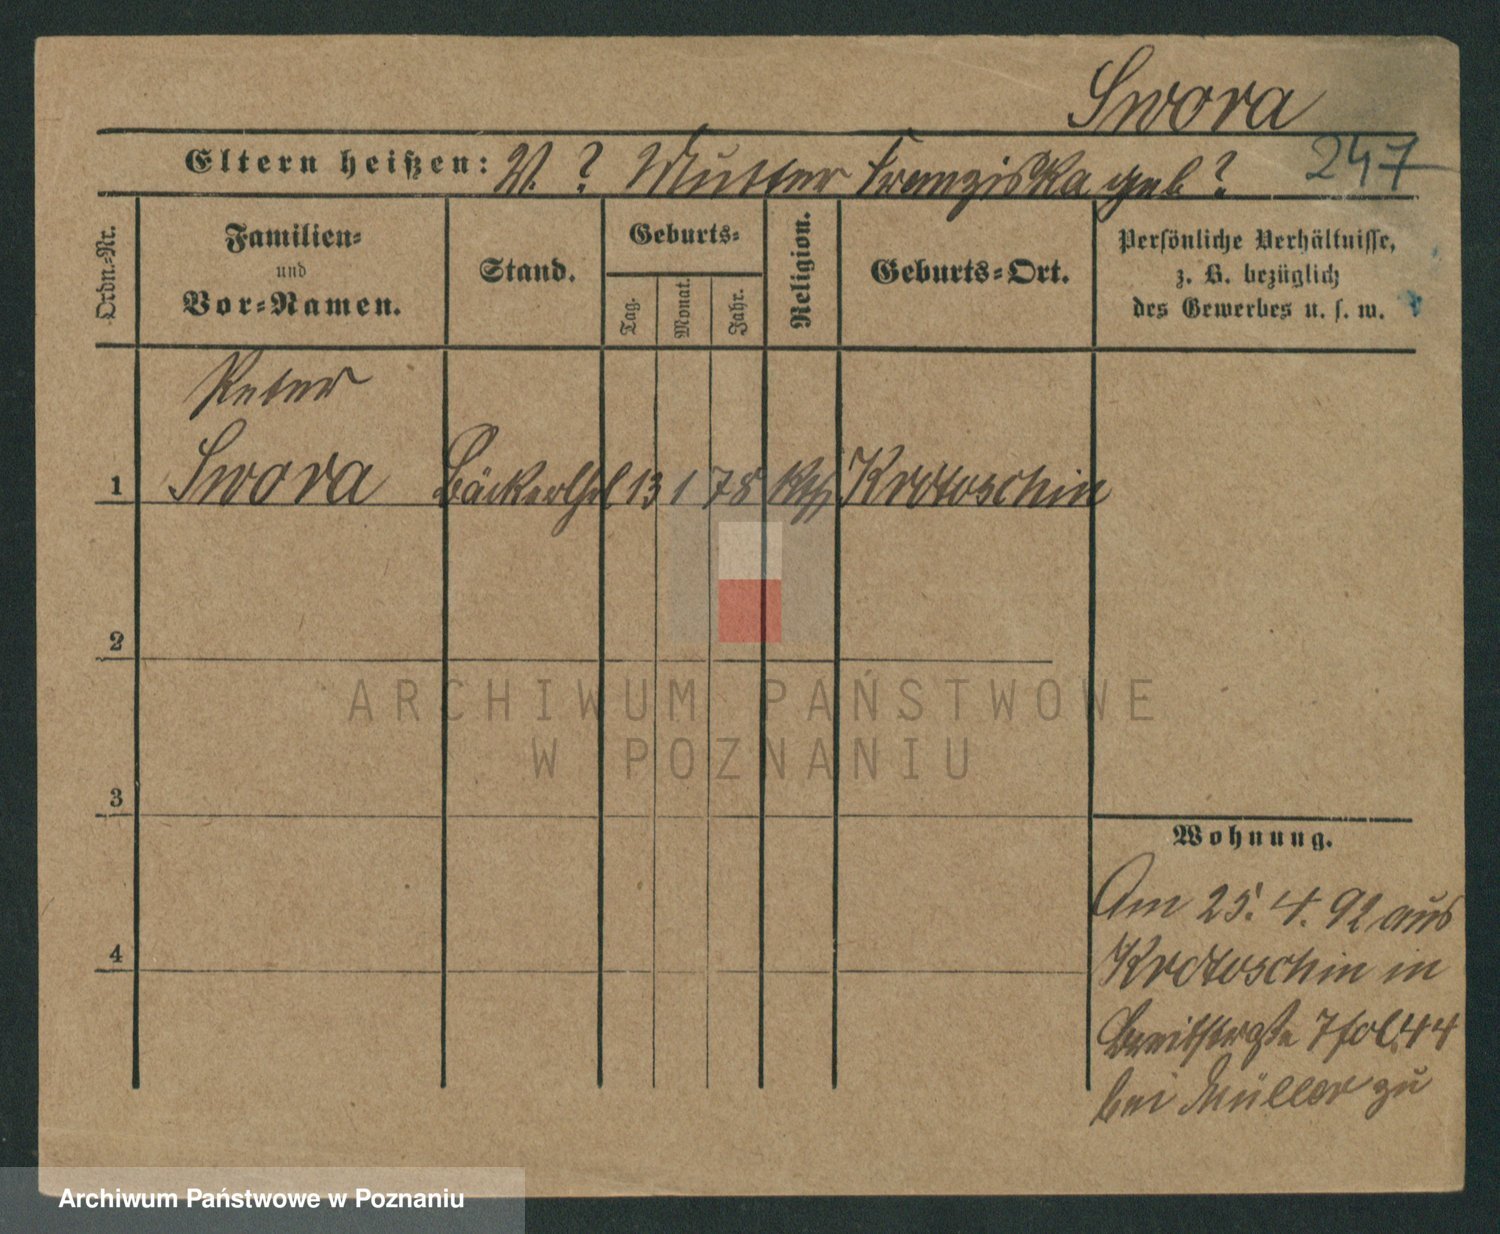 Swora
Eltern heißen: V. ? Mutter Franziska geb ?
247
Ordn.-Nr.
Familien-
und
Vor-Namen.
Stand.
Geburts-
Tag.
Monat.
Jahr.
Religion.
Geburts-Ort.
Persönliche Verhältnisse,
z. B. bezüglich
des Gewerbes u. s. w.
Peter
1 Swora 13 1 78 kth Krotoschin
2
ARCHIWUM PAŃSTWOWE
W POZNANIU
3
Wohnung.
Am 25. 4. 92 aus
4
Krotoschin in
7 fol. 44
bei Müller zu
Archiwum Państwowe w Poznaniu